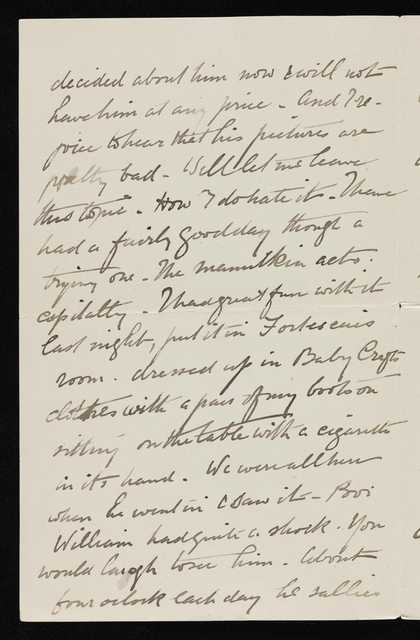 decided about him now & will not
have him at any price - And I re-
joice to hear that his pictures are
pretty bad - Well let me leave
this topic - How I do hate it - I have
had a fairly good day though a
trying one - The mannikin acts
capitally - I had great fun with it
last night, put it in Fortescue's
room - dressed up in Baby
clothes with a pair of my boots on
sitting on the table with a cigarette
in its hand. We were all here
when he went in & saw it - Poor
William had quite a shock. You
would laugh to see him. About
four o'clock each day he sallies